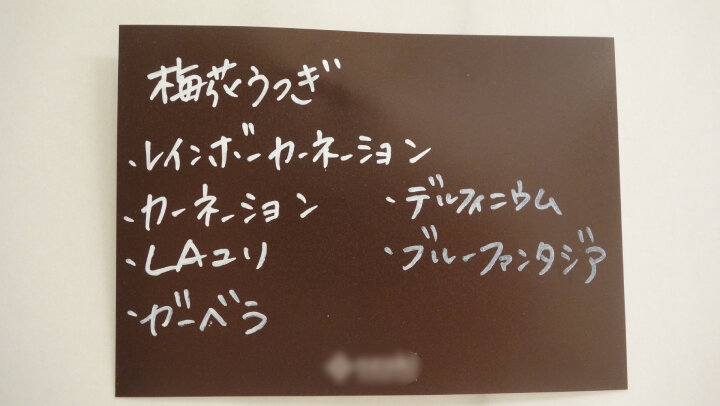 梅花うつぎ
・レインボーカーネーション
・カーネーション
・LAユリ
・ガーベラ
・デルフィニウム
・ブルーファンタジア